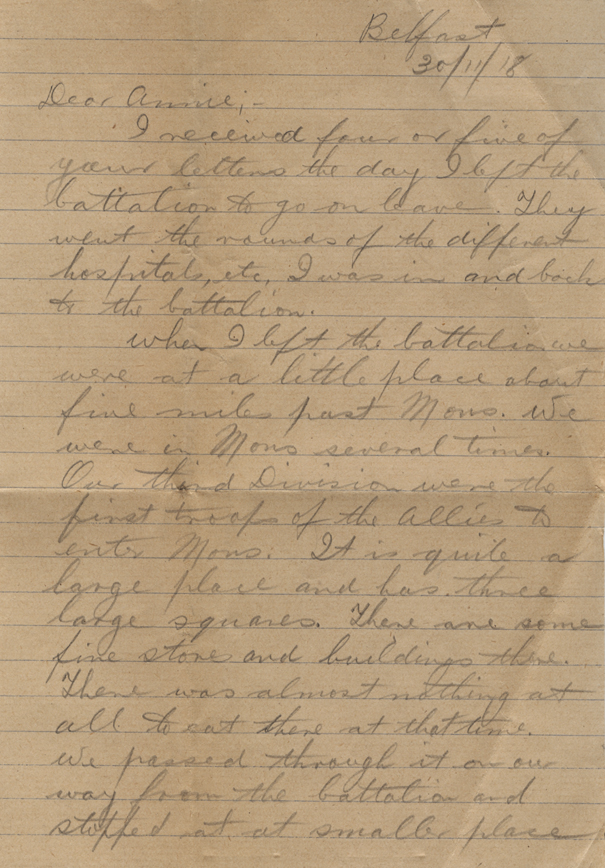 Belfast
30/11/18
Dear Annie;-
I received four or five of
your letters the day I left the
battalion to go on leave. They
went the rounds of the different
hospitals, etc, I was in and back
to the battalion.
When I left the battalion we
were at a little place about
five miles past Mons. We
were in Mons several times.
Our third Division were the
first troops of the Allies to
enter Mons. It is quite a
large place and has three
large squares. There are some
fine stores and buildings there.
There was almost nothing at
all to eat there at that time.
We passed through it on our
way from the battalion and
stopped at at smaller place